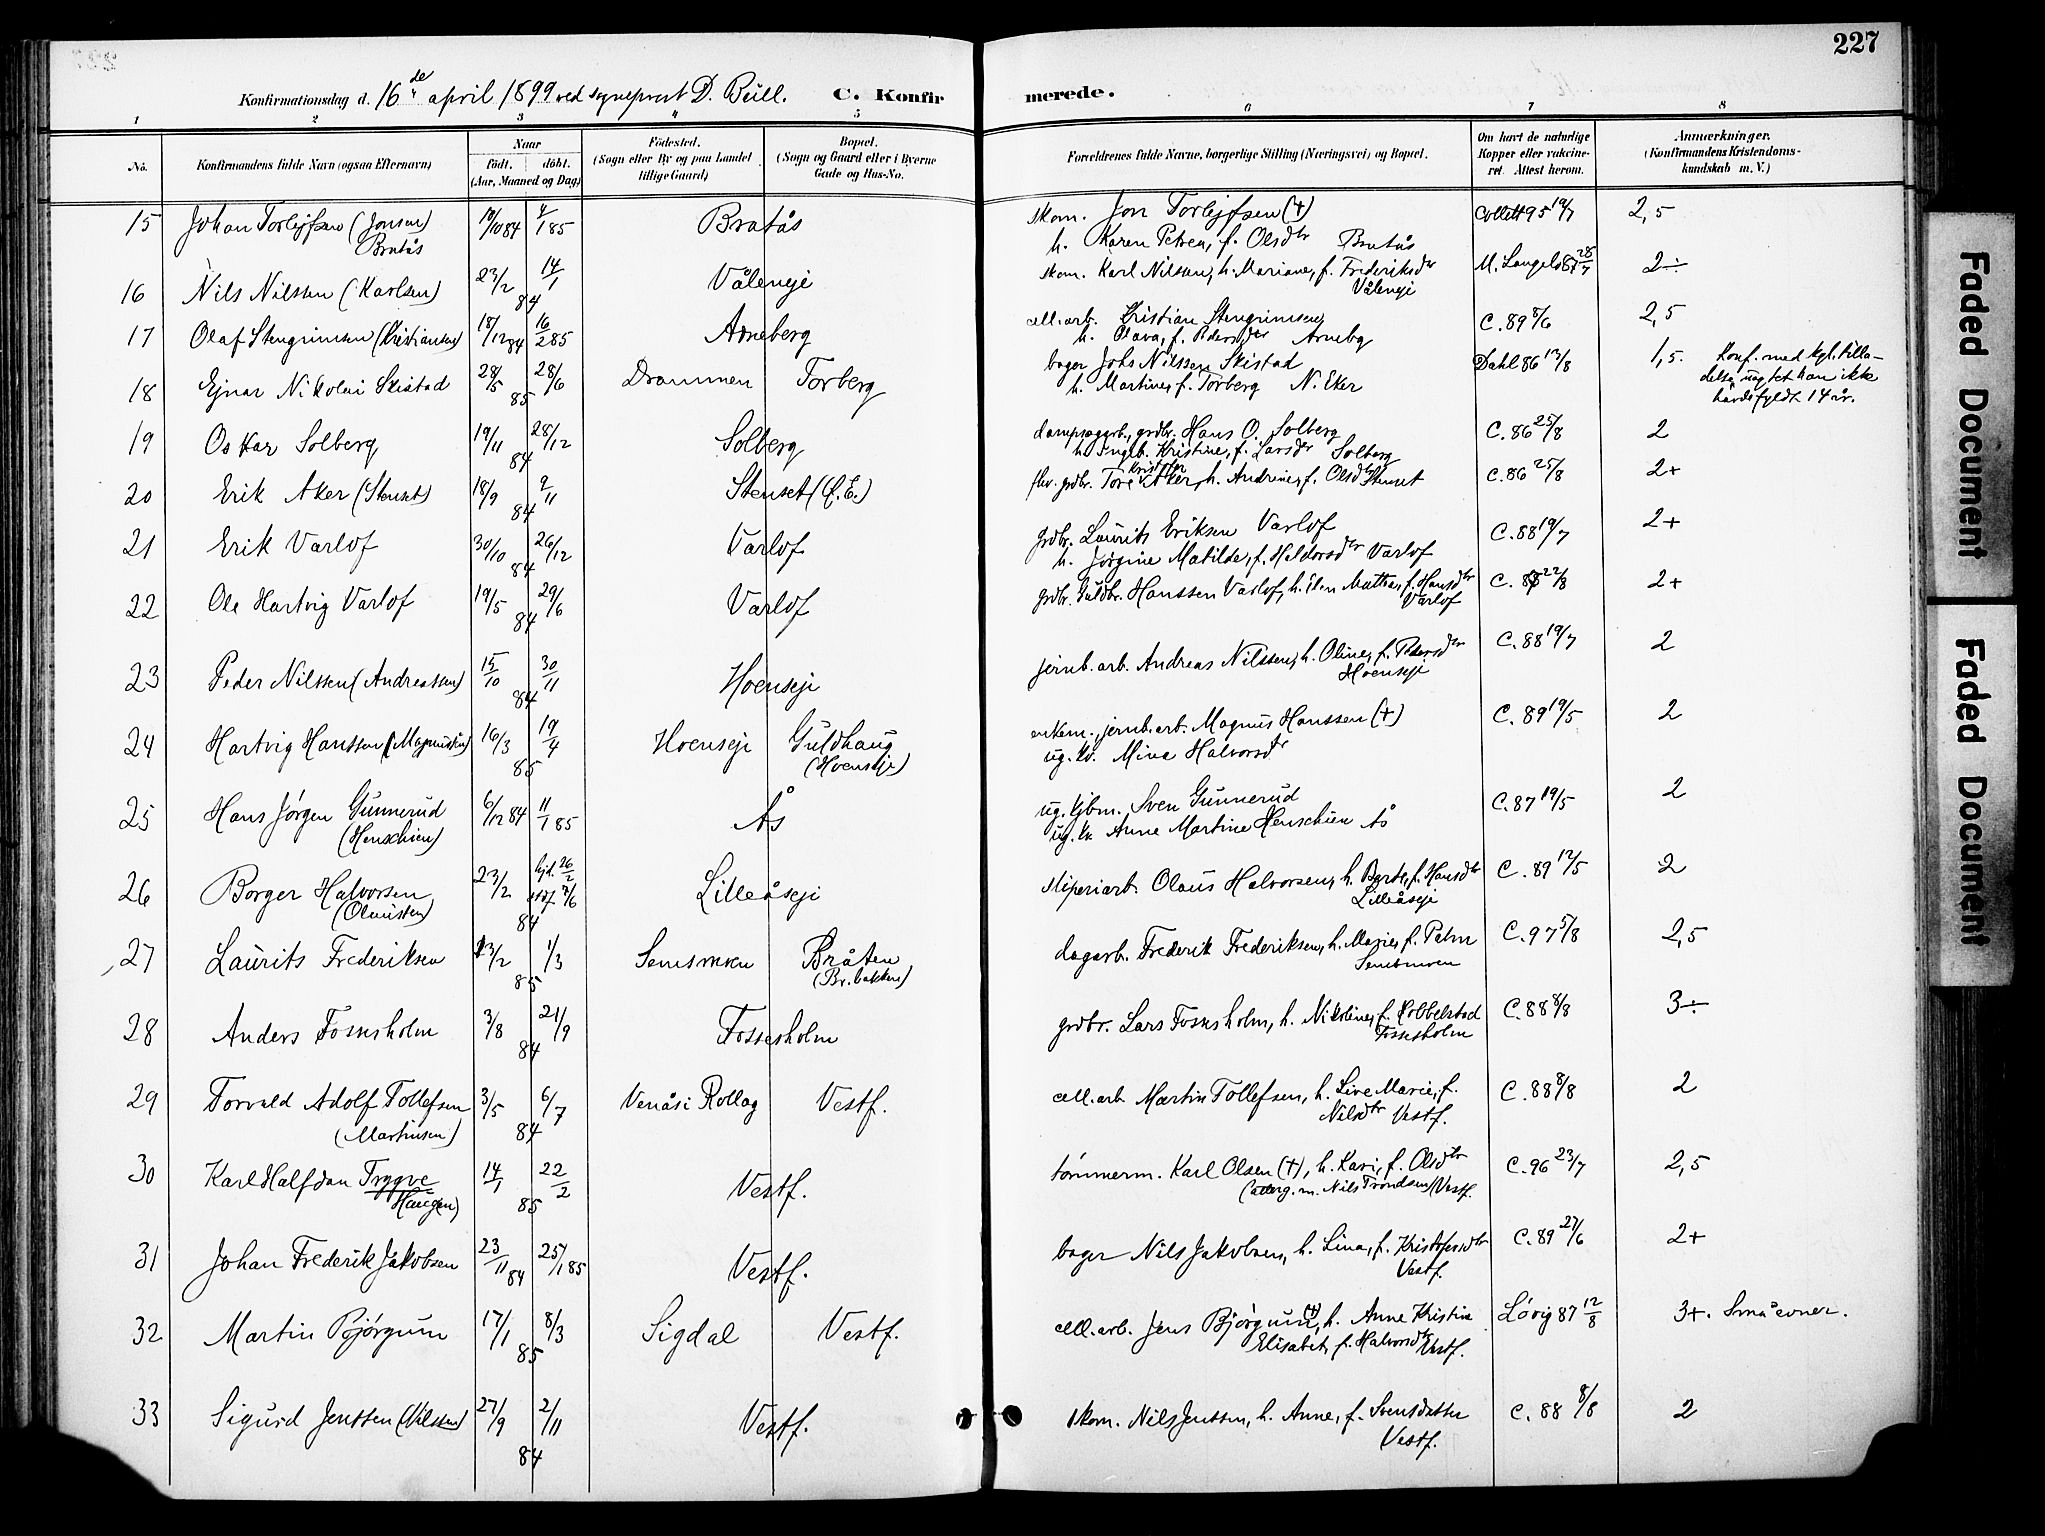 227
Konfirmationsdag d. 16de april 1899 ved sogneprest D. Bull. C. Konfirmerede.
1 2 3 4 5 6 7 8
No. Konfirmandens fulde Navn (ogsaa Efternavn) Naar født. døbt. (Aar, Maaned og Dag) Fødested. (Sogn eller By og paa Landet tillige Gaard) Bopæl. (Sogn og Gaard eller i Byerne Gade og Hus-No. Forældrenes fulde Navne, borgerlige Stilling (Næringsvei) og Bopæl. Om havt de naturlige Kopper eller vakcineret. Attest herom. Anmærkninger. (Konfirmandens Kristendomskundskab m. V.)
15 Johan Torlejfsen (Jonsen) 10/10 84 4/1 85 Bratås skom. Jon Torlejfsen (+) Collett 95 19/7 2,5
Bratås h. Karen Petrea, f. Olsdtr Bratås
16 Nils Nilssen (Karlsen) 23/2 84 14/1 Våleneje skom. Karl Nilsen, h. Mariane, f. Frederiksdtr M. Langels 87 28/7 2÷
Våleneje
17 Olaf Stengrimsen (Kristiansen) 18/12 84 16/2 85 Arneberg cell.arb. Kristian Stengrimsen, C. 89 8/6 2,5
h. Olava, f. Pedersdtr Arnebg
18 Ejnar Nikolai Skistad 28/5 85 28/6 Drammen Torberg bager Johs Nilssen Skistad Dahl 86 13/8 1,5. Konf. med kgl. tilla-
h. Martine, f. Torberg N. Eker delse uagtet han ikke
havde fyldt 14 år.
19 Oskar Solberg 19/11 84 28/12 Solberg dampsagarb., grdbr. Hans O. Solberg C. 86 25/8 2
h. Ingeb. Kristine, f. Larsdtr Solberg
20 Erik Aker (Stenset) 18/9 84 2/11 Stenset (Ø.E.) grdbr. Tore Kristofer Aker, h. Andrine, f. Olsdtr Stenset C. 86 25/8 2+
21 Erik Varlof 30/10 84 26/12 Varlof grdbr. Laurits Eriksen Varlof C. 88 19/7 2+
h. Jørgine Matilde, f. Haldorsdtr Varlof
22 Ole Hartvig Varlof 19/5 84 29/6 Varlof grdbr. Guldbr. Hanssen Varlof, h. Elen Mathea, f. Hansdtr C. 22/8 2+
Varlof
23 Peder Nilssen (Andreassen) 15/10 84 30/11 Hoenseje jernb.arb. Andreas Nilssen, h. Oline, f. Pedersdtr C. 88 19/7 2
Hoenseje
24 Hartvig Hanssen (Magnussen) 16/3 85 19/4 Hoenseje Guldhaug enkem., jernb.arb. Magnus Hanssen (+) C. 89 19/5 2
(Hoenseje) ug. kv. Mina Halvorsdtr
25 Hans Jørgen Gunnerud 6/12 84 11/1 85 Ås ug. Sven Gunnerud C. 87 19/5 2
(Henschien) ug. kv. Anne Martine Henschien Ås
26 Borger Halvorsen 23/2 84 hjd. 26/2 stdf. 2/6 Lilleåseje sliperiarb. Olaus Halvorsen, h. Berte, f. Hansdtr C. 89 12/5 2
(Olaussen) Lilleåseje
27 Laurits Frederiksen 13/2 85 1/3 Semsmoen Bråten dagarb. Frederik Frederiksen, h. Marie, f. Palm C. 97 5/8 2,5
(Br. bakken) Semsmoen
28 Anders Fossesholm 3/8 84 21/9 Fossesholm grdbr. Lars Fossesholm, h. Nikoline, f. Kobbelstad C. 88 8/8 3÷
Fossesholm
29 Torvald Adolf Tollefsen 3/5 84 6/7 Venåsi Rollag Vestf. cell.arb Martin Tollefsen, h. Live Marie, f. C. 88 8/8 2
(Martinsen) Nilsdtr Vestf.
30 Karl Halfdan Trygve 14/1 85 22/2 Vestf. tømmerm. Karl Olsen (+), h. Kari, f. Olsdtr C. 96 23/7 2,5
Haug(en) (atterg. m. Nils Trondsen) Vestf.
31 Johan Frederik Jakobsen 23/11 84 25/1 85 Vestf. bager Nils Jakobsen, h. Lina, f. Kristofersdtr C. 89 27/6 2+
Vestf.
32 Martin Bjørgum 17/1 85 8/3 Sigdal Vestf. cell.arb. Jens Bjørgum (+), h. Anne Kristine Løvig 87 12/8 3+. Små evner.
Elisabet, f. Halvorsdtr Vestf.
33 Sigurd Jenssen (Nilssen) 27/9 84 2/11 Vestf. skom. Nils Jenssen, h. Anne, f. Svensdatter C. 88 8/8 2
Vestf.
Faded Document
Faded Document